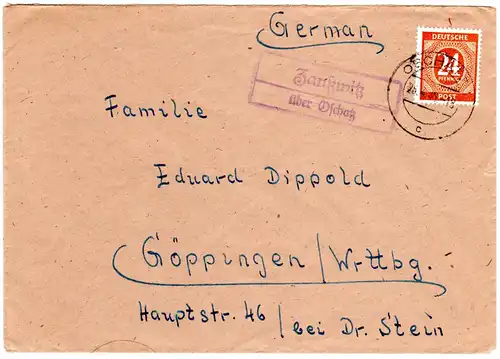 German
DEUTSCHE
24
PFENNIG
POST
Zaußwitz
über Oschatz
c
Familie
Eduard Dippold
Göppingen/Wrttbg.
Hauptstr. 46 / bei Dr. Stein